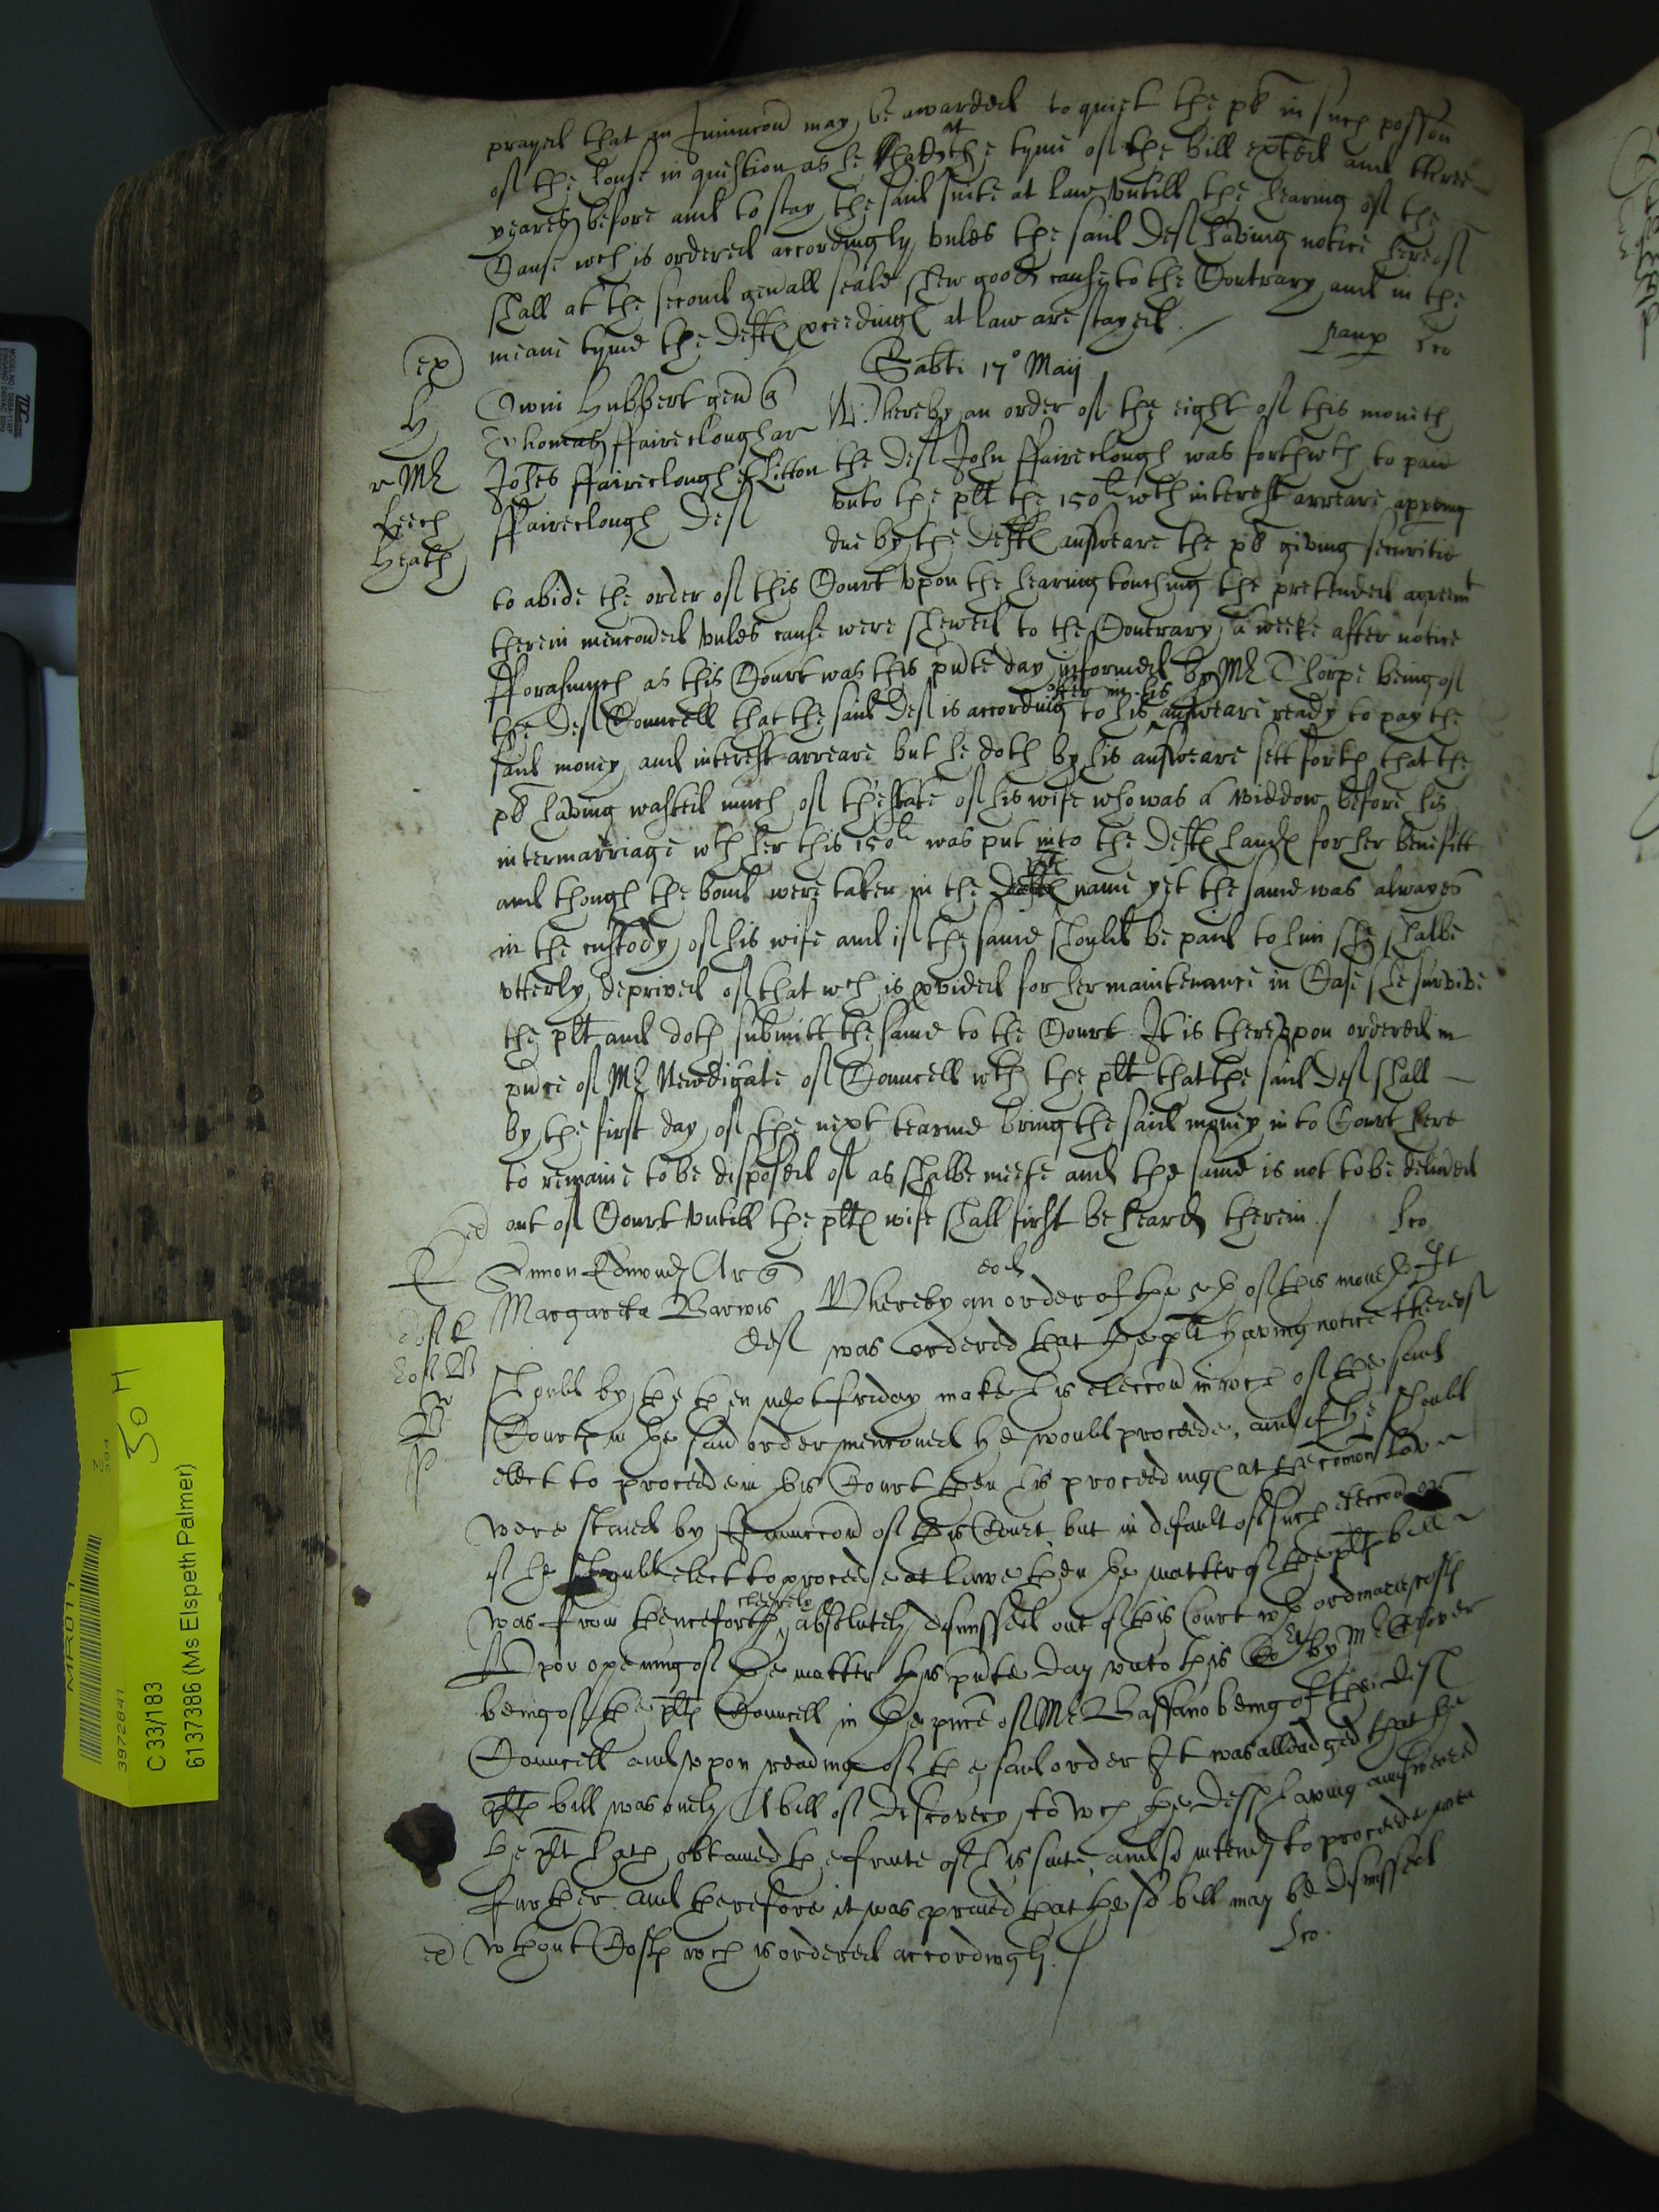 prayed that an Iniuncon may be awarded to quiet the pl in such possion
of the house in question as he had at the tyme of the bill exhited and three
yeares before and to stay the said suite at law vntill the hearing of the
Cause wch is ordered accordingly vnles the said Def having notice hereof
shall at the second genall seale shew good cause to the Contrary and in the
meane tyme the Defts pceedings at law are stayed /
paup
ex
Sabti 17º Maij
H
r Mr
Leech
Heath
Owin Hubbert gen q
Thomas ffaireclough ar
Johes ffaireclough & Litton
ffaireclough Def
Whereby an order of the eight of this moneth
the Def John ffaireclough was forthwth to paie
vnto the plt the 150l wth interest arreare appeing
due by the Defts answeare the pl giving securitie
to abide the order of this Court vpon the hearing touching the pretended agreemt
therein menconed vnles cause were shewed to the Contrary a weeke after notice
fforasmuch as this Court was this pnte day informed by Mr Thorpe being of
the Def Councell that the said Def is according to his offer in his answeare ready to pay the
said money and interest arreare but he doth by his answeare sett forth that the
pl having wasted much of thestate of his wife who was a widdow before his
intermarriage wth her this 150l was put into the Defts hands for her benefitt
and though the bond were taken in the plts name yet the same was alwayes
in the custody of his wife and if the same should be paid to him she shalbe
vtterly deprived of that wch is pvided for her maintenance in Case she survive
the plt and doth submitt the same to the Court. It is therevpon ordered in
pnce of Mr Newdigate of Councell wth the plt that the said Def shall
by the first day of the next tearme bring the said money into Court here
to remaine to be disposed of as shalbe meete and the same is not to be delived
out of Court vntill the plts wife shall first be heard therein /
ex
Simon Edmonds Ar q
Margareta Barwis
def
eod
Whereby an order of the 5th of this moneth It
was ordered that the plt having notice thereof
should by the then next friday make his eleccon in wch of the said
Courts in the said order menconed he would proceede, and if he should
elect to proceede in this Court then his proceedings at the comon law
were staied by Iniunccon of this Court but in default of such eleccon or
if he should elect to proceede at lawe then the matter of the plts bill
was from thenceforth cleerely & absolutely dismissed out of this Court wth ordinarie costs
Vpon opening of the matter this pnte day vnto this Cort by Mr
being of the plts Councell in the pnce of Mr Bassano being of the Defts
Councell and vpon reading of the said order It was alleadged that the
plts bill was onely A bill of discovery to wch the Deft having answered
the plt hath obtained the fruite of his suite, and so intends to proceede noe
further and therefore it was praied that the sd bill may be dismissed
ex
wthout Costs wch is ordered accordingly. /
MR011
3972841
C 33/183
6137386 (Ms Elspeth Palmer)
50 H